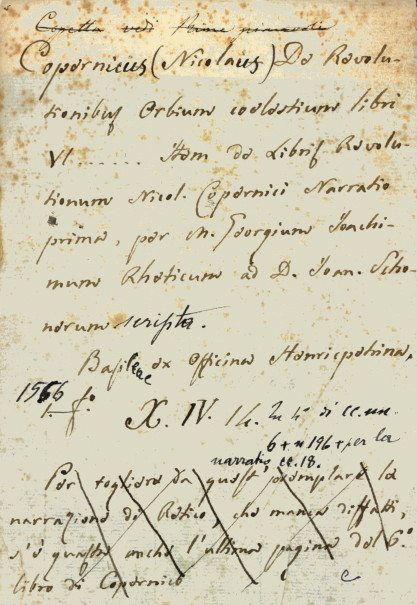 Copernicus (Nicolaus) De Revolu-
tionibus Orbium coelestium libri
VI ...... Item de Libris Revolu-
tionum Nicol. Copernici Narratio
prima, per M. Georgium Joachi-
mum Rheticum ad D. Joan. Scho-
nerum scripta.
Basileae ex Officina Henricpetrina,
1566 f.º
X. IV. 14. In 4º di cc.
6 + n 196 + per la
narratio cc. 18.
Per togliere da quest' esemplare la
narrazione di Retico, che manca diffatti,
s'è guasta anche l'ultima pagina del 6.º
libro di Copernico